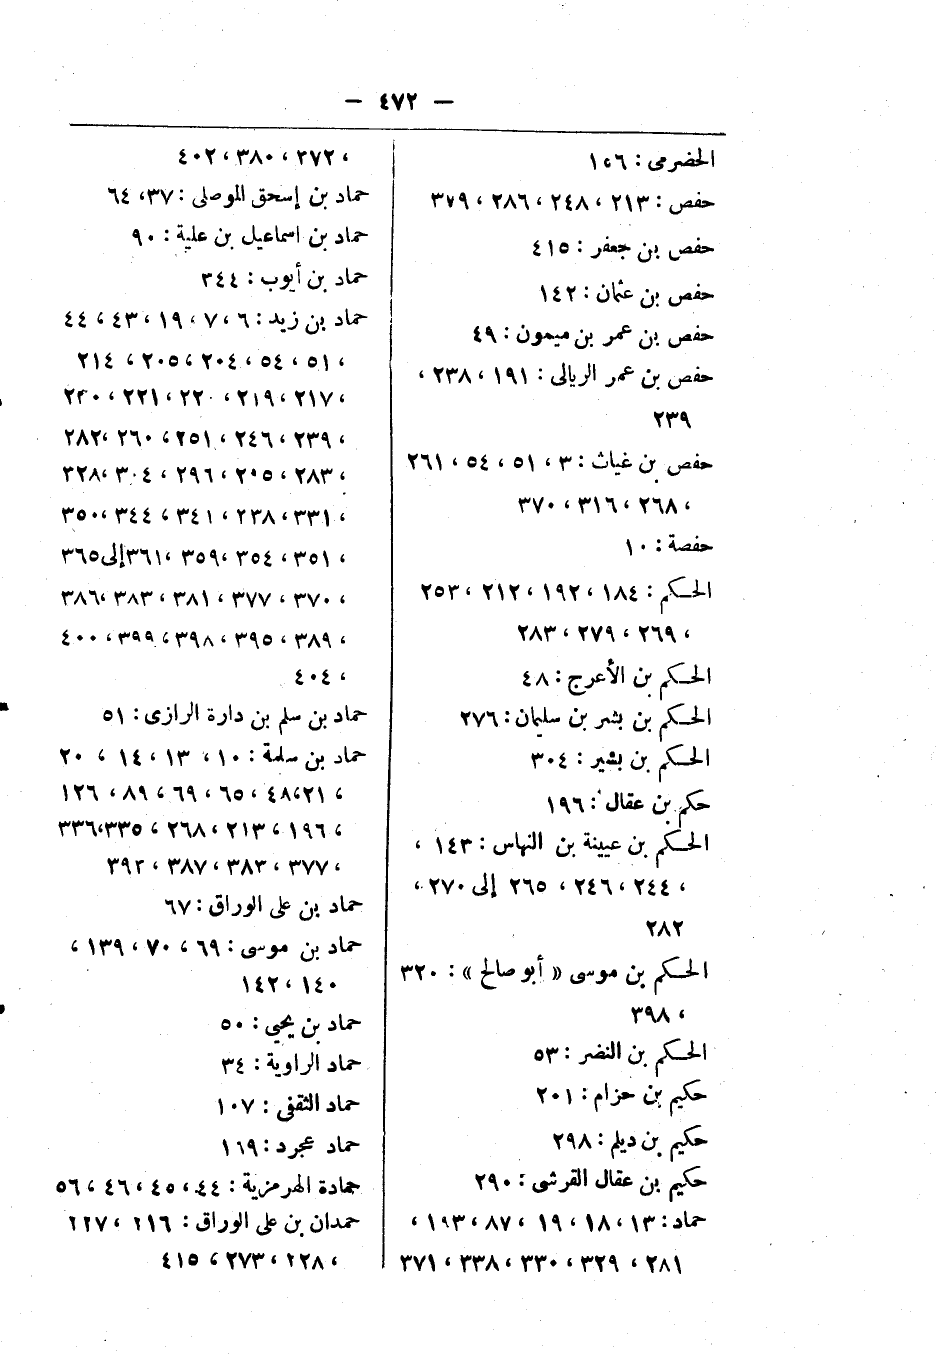 — ٤٧٢ —
الحضرمى : ١٥٦
حفص : ٢١٣ ، ٢٤٨ ، ٢٨٦ ، ٣٧٩
حفص بن جعفر : ٤١٥
حفص بن عثمان : ١٤٢
حفص بن عمر بن ميمون : ٤٩
حفص بن عمر الريالى : ١٩١ ، ٢٣٨ ،
٢٣٩
حفص بن غياث : ٣ ، ٥١ ، ٥٤ ، ٢٦١
، ٢٦٨ ، ٣١٦ ، ٣٧٠
حفصة : ١٠
الحكم : ١٨٤ ، ١٩٢ ، ٢١٢ ، ٢٥٣
، ٢٦٩ ، ٢٧٩ ، ٢٨٣
الحكم بن الأعرج : ٤٨
الحكم بن بشر بن سليمان : ٢٧٦
الحكم بن بشير : ٣٠٤
حكم بن عقال : ١٩٦
الحكم بن عيينة بن النهاس : ١٤٣ ،
، ٢٤٤ ، ٢٤٦ ، ٢٦٥ إلى ٢٧٠ ،
٢٨٢
الحكم بن موسى « أبو صالح » : ٣٢٠
، ٣٩٨
الحكم بن النضر : ٥٣
حكيم بن حزام : ٢٠١
حكيم بن ديلم : ٢٩٨
حكيم بن عقال القرشى : ٢٩٠
حماد : ١٣ ، ١٨ ، ١٩ ، ٨٧ ، ١٩٣ ،
٢٨١ ، ٣٢٩ ، ٣٣٠ ، ٣٣٨ ، ٣٧١
، ٣٧٢ ، ٣٨٠ ، ٤٠٢
حماد بن إسحق الموصلى : ٣٧ ، ٦٤
حماد بن اسماعيل بن علية : ٩٠
حماد بن أيوب : ٣٤٤
حماد بن زيد : ٦ ، ٧ ، ١٩ ، ٤٣ ، ٤٤
، ٥١ ، ٥٤ ، ٢٠٤ ، ٢٠٥ ، ٢١٤
، ٢١٧ ، ٢١٩ ، ٢٢٠ ، ٢٢١ ، ٢٣٠
، ٢٣٩ ، ٢٤٦ ، ٢٥١ ، ٢٦٠ ، ٢٨٢
، ٢٨٣ ، ٢٩٥ ، ٢٩٦ ، ٣٠٤ ، ٣٢٨
، ٣٣١ ، ٢٣٨ ، ٣٤١ ، ٣٤٤ ، ٣٥٠
، ٣٥١ ، ٣٥٤ ، ٣٥٩ ، ٣٦١ إلى ٣٦٥
، ٣٧٠ ، ٣٧٧ ، ٣٨١ ، ٣٨٣ ، ٣٨٦
، ٣٨٩ ، ٣٩٥ ، ٣٩٨ ، ٣٩٩ ، ٤٠٠
، ٤٠٤
حماد بن سلم بن دارة الرازى : ٥١
حماد بن سلمة : ١٠ ، ١٣ ، ١٤ ، ٢٠
، ٢١ ، ٤٨ ، ٦٥ ، ٦٩ ، ٨٩ ، ١٢٦
، ١٩٦ ، ٢١٣ ، ٢٦٨ ، ٣٣٥ ، ٣٣٦
، ٣٧٧ ، ٣٨٣ ، ٣٨٧ ، ٣٩٢
حماد بن على الوراق : ٦٧
حماد بن موسى : ٦٩ ، ٧٠ ، ١٣٩ ،
١٤٠ ، ١٤٢
حماد بن يحيى : ٥٠
حماد الراوية : ٣٤
حماد الثقفى : ١٠٧
حماد عجرد : ١٦٩
حمادة الهرمزية : ٤٤ ، ٤٥ ، ٤٦ ، ٥٦
حمدان بن على الوراق : ٢١٦ ، ٢٢٧
، ٢٢٨ ، ٢٧٣ ، ٤١٥